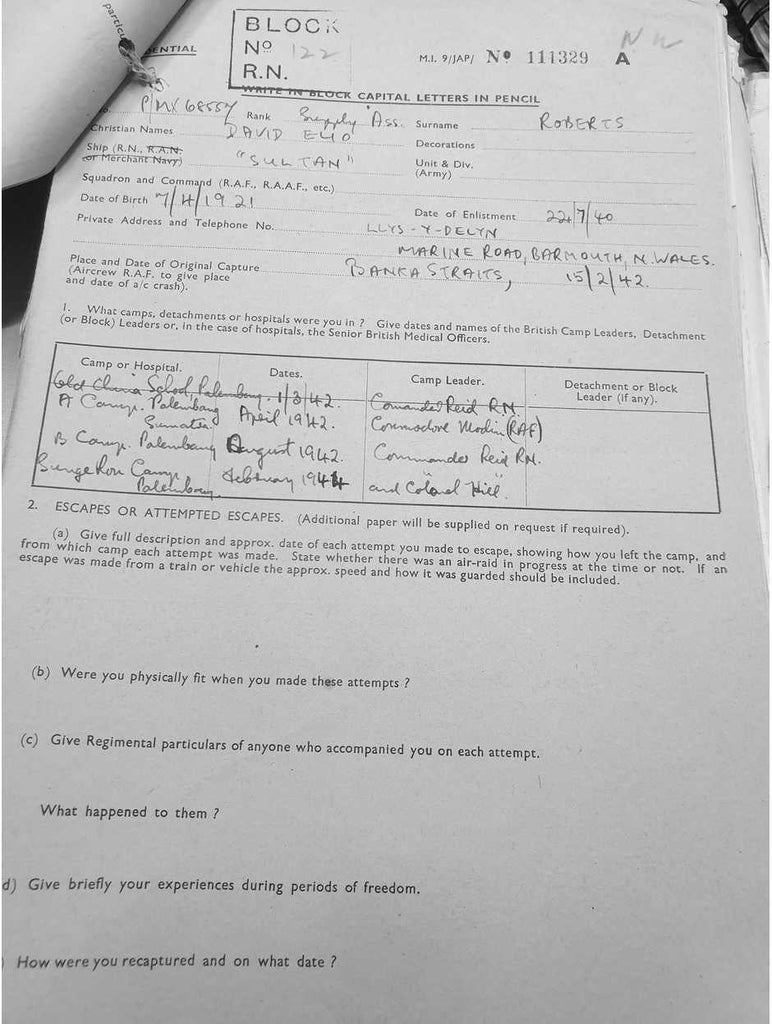 particu
ENTIAL
BLOCK
Nº 122
R.N.
M.I. 9/JAP/ Nº 111329 A
NW
WRITE IN BLOCK CAPITAL LETTERS IN PENCIL
o. P/MX 68557 Rank Supply Ass. Surname ROBERTS
Christian Names DAVID Decorations
Ship (R.N., R.A.N. or Merchant Navy) "SULTAN" Unit & Div. (Army)
Squadron and Command (R.A.F., R.A.A.F., etc.)
Date of Birth 7/4/1921 Date of Enlistment 22/7/40
Private Address and Telephone No. LLYS-Y-DELYN
MARINE ROAD, BARMOUTH, N. WALES.
Place and Date of Original Capture BANKA STRAITS, 15/2/42.
(Aircrew R.A.F. to give place
and date of a/c crash).
1. What camps, detachments or hospitals were you in ? Give dates and names of the British Camp Leaders, Detachment
(or Block) Leaders or, in the case of hospitals, the Senior British Medical Officers.
Camp or Hospital. Dates. Camp Leader. Detachment or Block Leader (if any).
Old China School, Palembang. 1/3/42. Comander Reid RN.
A Camp. Palembang Sumatra April 1942. Commodore Modin (RAF)
B Camp. Palembang August 1942. Commander Reid RN.
Sunge Ron Camp. Palembang February 1944 " " and Colonel Hill.
2. ESCAPES OR ATTEMPTED ESCAPES. (Additional paper will be supplied on request if required).
(a) Give full description and approx. date of each attempt you made to escape, showing how you left the camp, and
from which camp each attempt was made. State whether there was an air-raid in progress at the time or not. If an
escape was made from a train or vehicle the approx. speed and how it was guarded should be included.
(b) Were you physically fit when you made these attempts ?
(c) Give Regimental particulars of anyone who accompanied you on each attempt.
What happened to them ?
d) Give briefly your experiences during periods of freedom.
) How were you recaptured and on what date ?